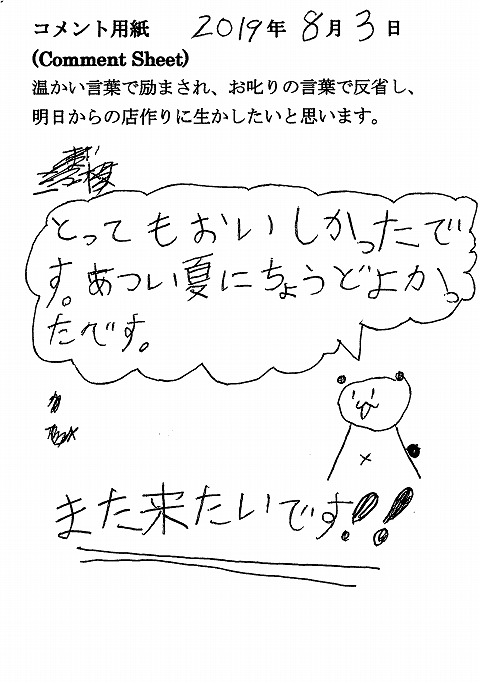 コメント用紙 2019年 8月 3日
(Comment Sheet)
温かい言葉で励まされ、お叱りの言葉で反省し、
明日からの店作りに生かしたいと思います。
とってもおいしかったで
す。あつい夏にちょうどよかっ
たです。
また来たいです!!